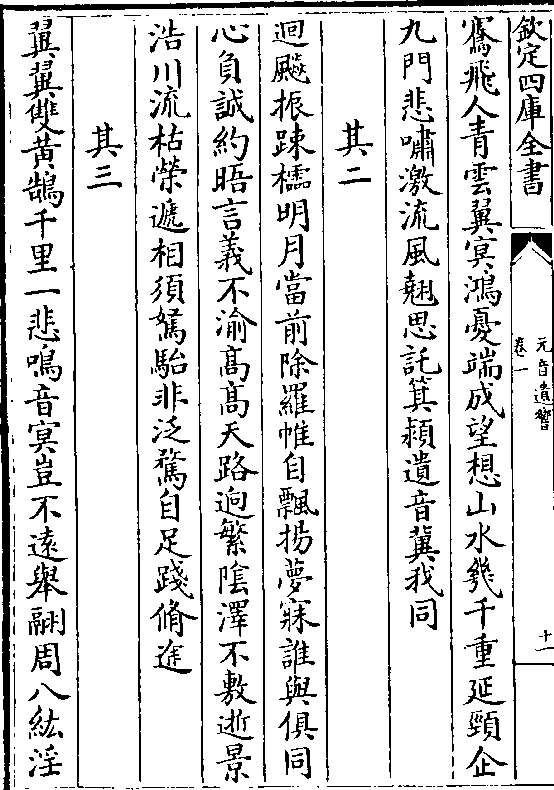 欽定四庫全書
元音遺響
卷一
十一
騫飛人青雲翼冥鴻憂端成望想山水幾千重延頸企
九門悲嘯激流風翹思託箕潁遺音冀我同
其二
迴飈振踈櫺明月當前除羅帷自飄揚夢寐誰與俱同
心負誠約晤言義不渝高高天路逈繁陰澤不敷逝景
浩川流枯榮遞相須駑駘非泛駕自足踐脩途
其三
翼翼雙黃鵠千里一悲鳴音冥豈不遠舉翮周八紘淫